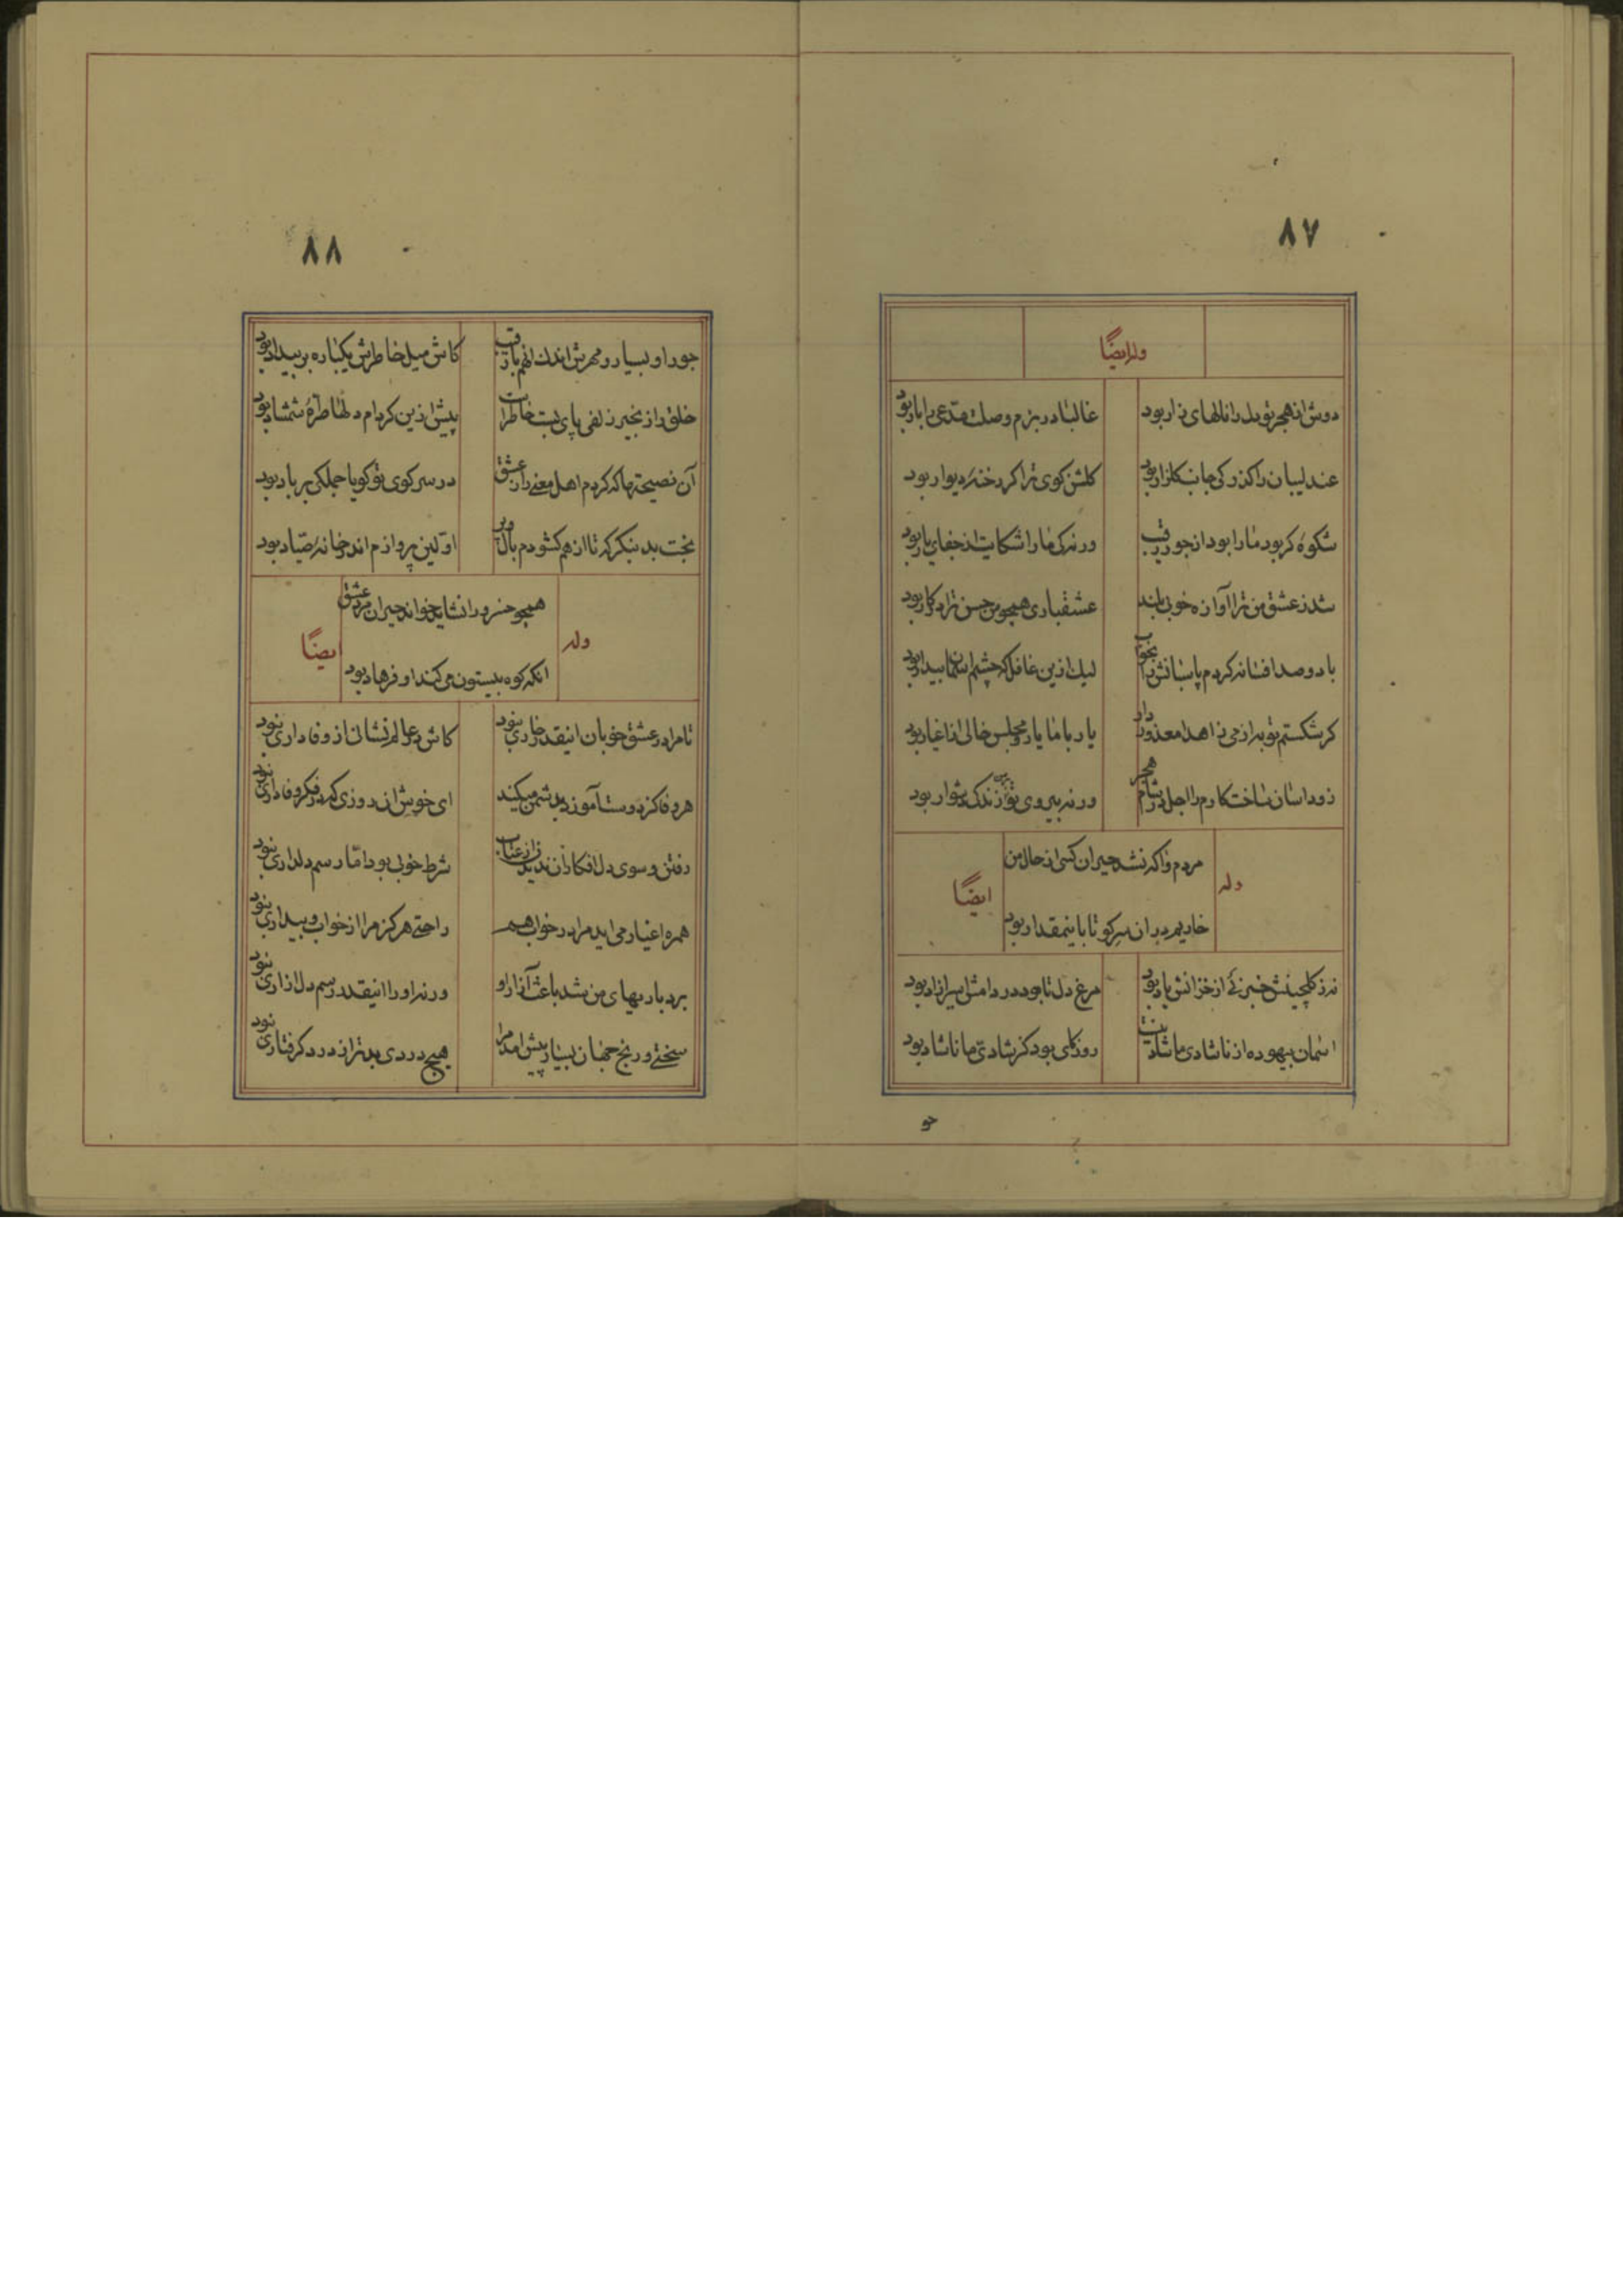 ۸۷
وله ایضًا
دوش از هجر تو دل را نالهای زار بود
غالبا در بزم وصلت مدعی را بار بود
عندلیبان را گذر کی جانب گلزار بود
گلشن کوی ترا گر رخنهٔ دیوار بود
شکوهٔ گر بود ما را بود از جور رقیب
ورنه کی ما را شکایت از جفای یار بود
شد ز عشق من ترا آوازه خوبی بلند
عشقبازی همچو من حسن ترا در کار بود
با دو صد افسانه کردم پاسبانش را بخواب
لیک ازین غافل که چشم آسمان بیدار بود
گر شکستم توبه از می زاهدا معذور دار
یار با ما یار و مجلس خالی از اغیار بود
زود اسان ساخت کارم را اجل در شام هجر
ورنه بیروی تو زین زندگی دشوار بود
وله
مردم و اگه نشد حیران کسی از حال من
ایضًا
خاریم در ان سر کو تا باینمقدار بود
نه ز گلچینش خبر نی از خزانش یاد بود
مرغ دل تا بود در دامش اسیر ازاد بود
اسمان بیهوده از ناشادی ما شاد نیست
روزگاری بود کز شادی ما ناشاد بود
جو
۸۸
جور او بسیار و مهرش اندک انهم با رقیب
کاش میل خاطرش یکباره بر بیداد بود
خلق را زنجیر زلفی پای بست خاطر است
پیش ازین گر دام دلها طرهٔ شمشاد بود
آن نصیحتها که کردم اهل معنی را ز عشق
در سر کوی تو گویا جملگی بر باد بود
بخت بد بنگر که تا از هم گشودم بال و پر
اوّلین پروازم اندر خانه صیّاد بود
وله
همچو خسرو را نشاید خواند حیران مرد عشق
ایضًا
انکه کوه بیستون می کند او فرهاد بود
تا مرا در عشق خوبان اینقدر خاری نبود
کاش در عالم نشانی از وفاداری نبود
هر وفا کز دوست آموزد بدشمن میکند
ای خوش ان روزی که در فکر وفاداری نبود
رفتن و سوی دل افکاران ندیدن از عتاب
شرط خوبی بود امّا رسم دلداری نبود
همره اغیار می اید مرا در خواب هم
راحتی هرگز مرا از خواب و بیداری نبود
بردباریهای من شد باعث آزار او
ورنه او را اینقدر رسم دل ازاری نبود
سختی و رنج جهان بسیار پیش امد مرا
هیچ دردی بدتر از درد گرفتاری نبود